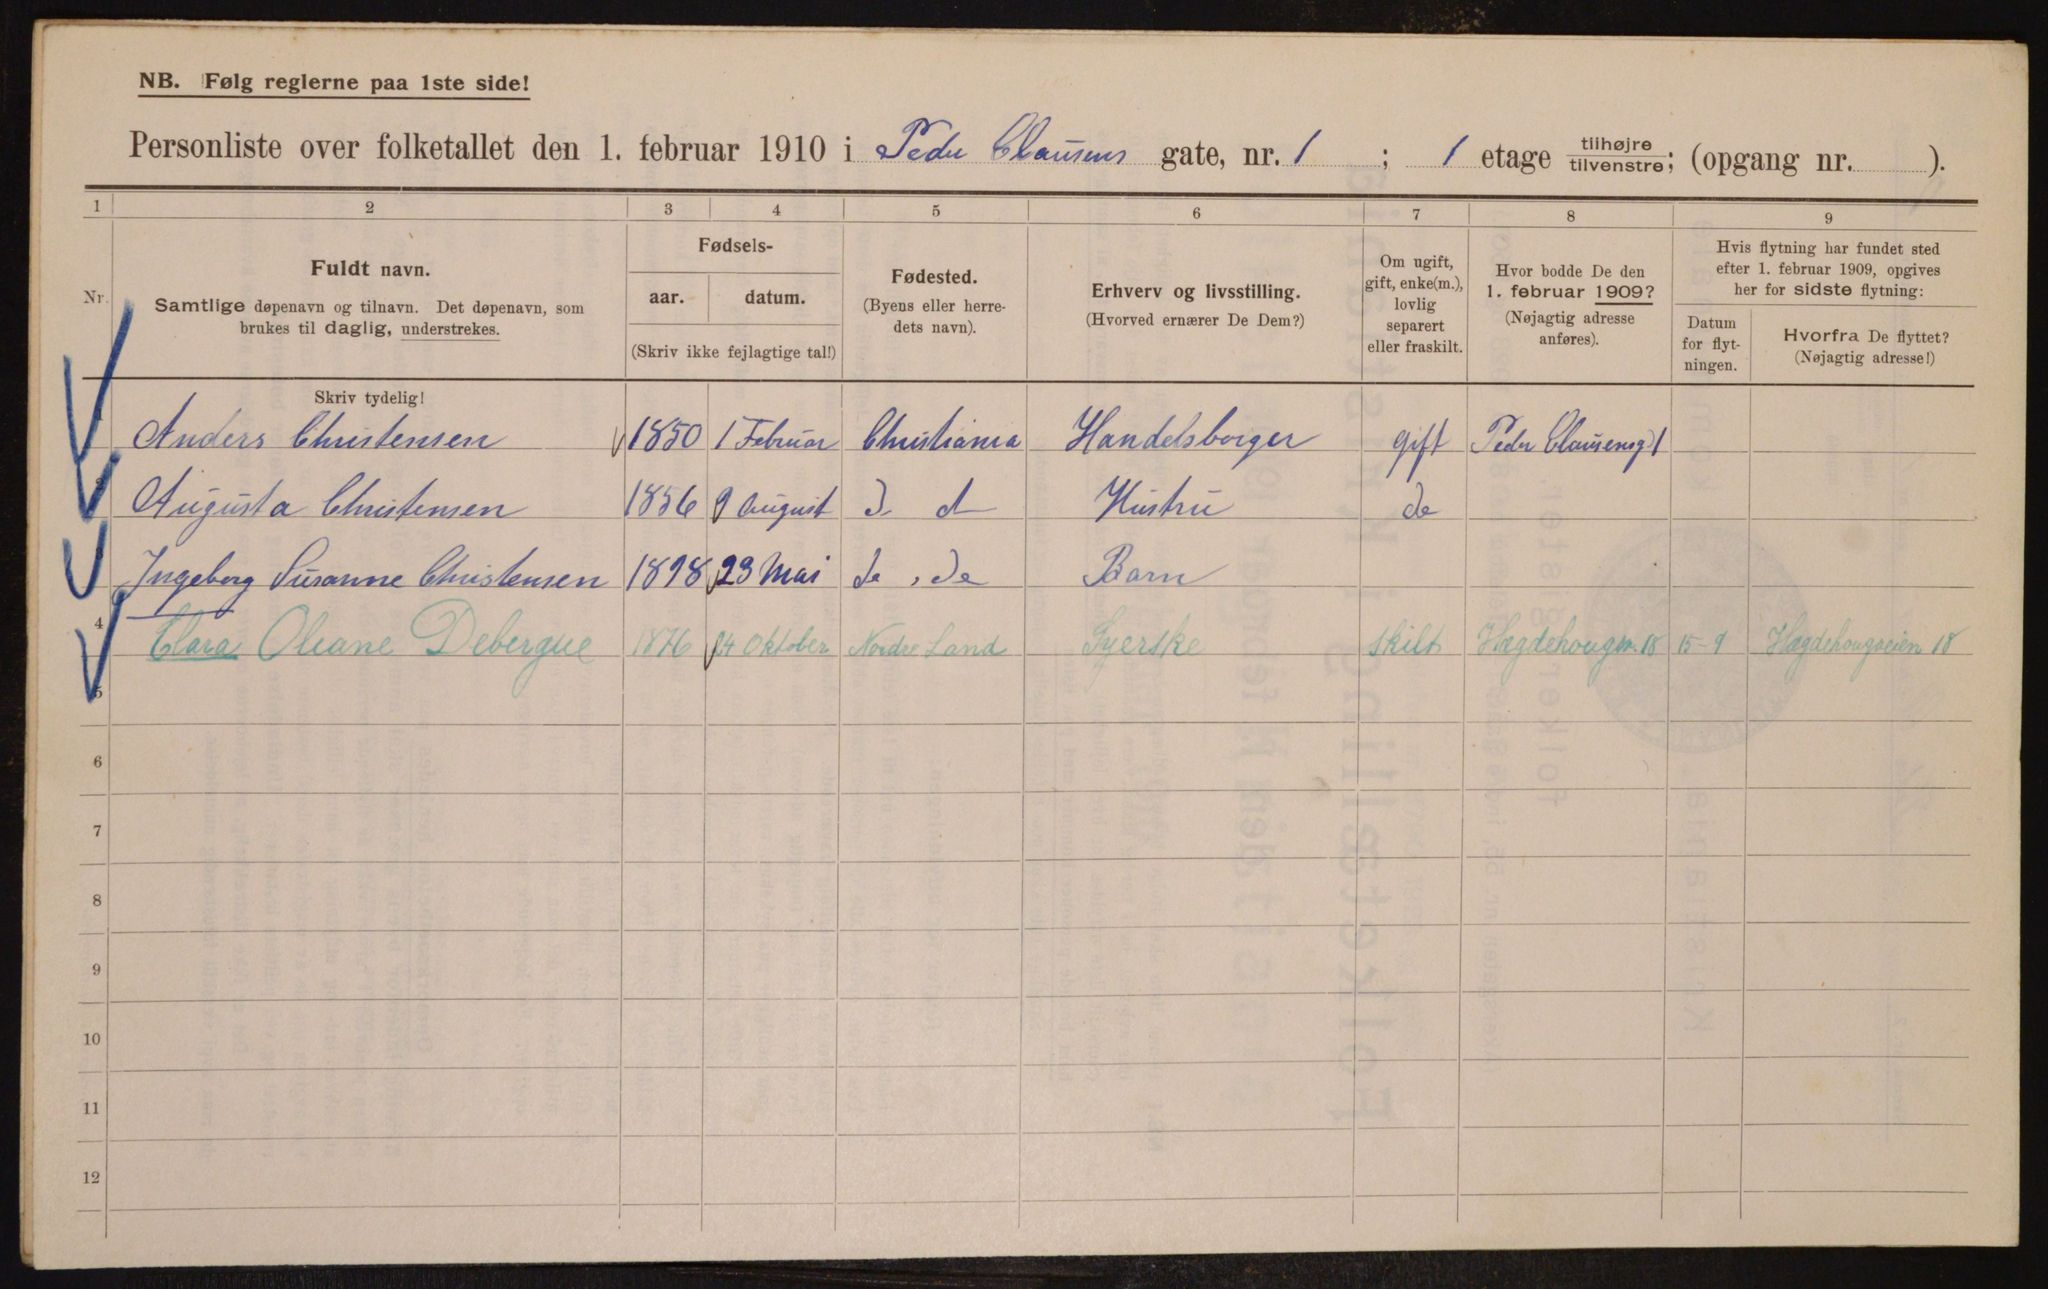 NB. Følg reglerne paa 1ste side!
Personliste over folketallet den 1. februar 1910 i Peder Clausens gate, nr. 1 ; 1 etage tilhøjre/tilvenstre; (opgang nr. ).
1 2 3 4 5 6 7 8 9
Nr.
Fuldt navn.
Samtlige døpenavn og tilnavn. Det døpenavn, som
brukes til daglig, understrekes.
Fødsels-
aar. datum.
(Skriv ikke fejlagtige tal!)
Fødested.
(Byens eller herre-
dets navn).
Erhverv og livsstilling.
(Hvorved ernærer De Dem?)
Om ugift,
gift, enke(m.),
lovlig
separert
eller fraskilt.
Hvor bodde De den
1. februar 1909?
(Nøjagtig adresse
anføres).
Hvis flytning har fundet sted
efter 1. februar 1909, opgives
her for sidste flytning:
Datum
for flyt-
ningen.
Hvorfra De flyttet?
(Nøjagtig adresse!)
Skriv tydelig!
1 Anders Christensen 1850 1 Februar Christiania Handelsborger gift Peder Clausensg 1
2 Augusta Christensen 1856 9 August d. d Hustru de
3 Ingeborg Susanne Christensen 1898 23 Mai de de Barn
4 Clara Oleane Debergue 1876 24 Oktober Nordre Land Syerske skilt Hægdehougsv. 18 15-9 Hægdehougsveien 18
5
6
7
8
9
10
11
12